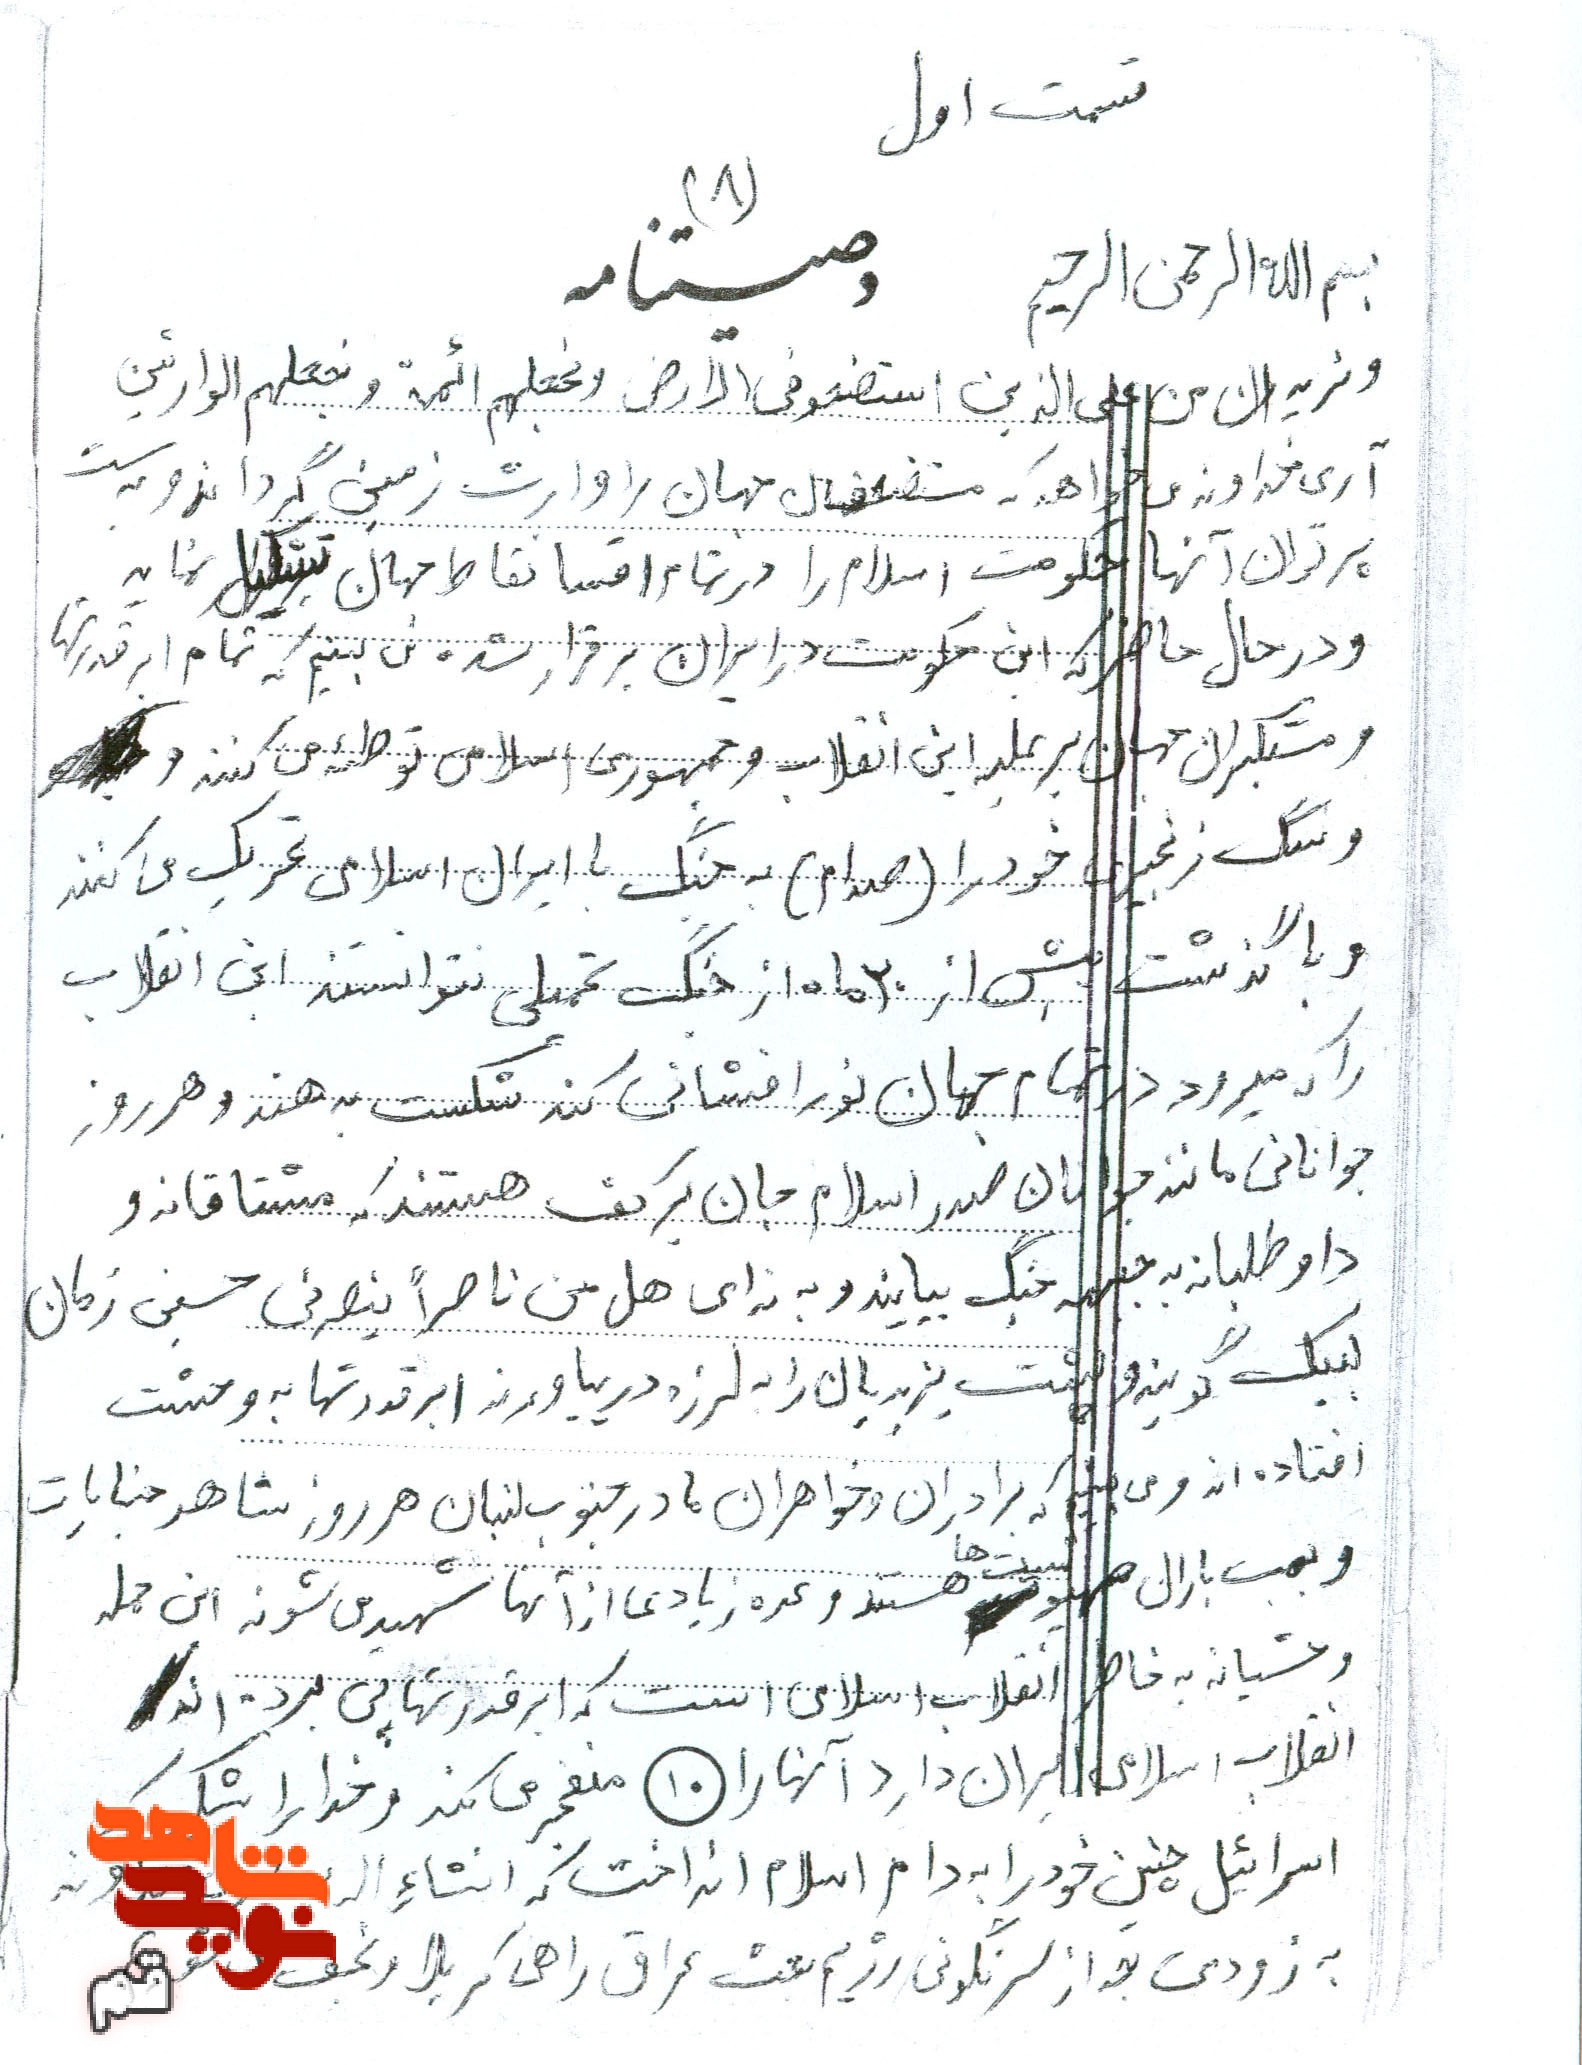 قسمت اول
(۸)
وصیتنامه
بسم الله الرحمن الرحیم
و نرید ان من علی الذین استضعفو فی الارض و نجعلهم ائمة و نجعلهم الوارثین
آری خداوند می خواهد که مستضعفان جهان را وارث زمین گرداند و به دست
پر توان آنها حکومت اسلام را در تمام اقسا نقاط جهان تشکیل نماید
و در حال حاضر که این حکومت در ایران برقرار شده می بینیم که تمام ابر قدرتها
و مستکبران جهان بر علیه این انقلاب و جمهوری اسلامی توطئه می کنند و
و سگ زنجیری خود را (صدام) به جنگ با ایران اسلامی تحریک می کنند
و با گذشت بیش از ۲۰ ماه از جنگ تحمیلی نتوانستند این انقلاب
را که میرود در تمام جهان نور افشانی کند شکست بدهند و هر روز
جوانانی مانند جوانان صدر اسلام جان بر کف هستند که مشتاقانه و
داوطلبانه به جبهه جنگ بیایند و به ندای هل من ناصراً ینصرنی حسین زمان
لبیک گویند و پشت یزیدیان را به لرزه در بیاورند ابر قدرتها به وحشت
افتاده اند و می بینیم که برادران و خواهران ما در جنوب لبنان هر روز شاهد جنایات
و بمب باران صهیونیست ها هستند و عده زیادی از آنها شهید می شوند این حمله
وحشیانه به خاطر انقلاب اسلامی است که ابر قدرتها پی برده اند
انقلاب اسلامی ایران دارد آنها را ۱۰ منفجر می کند و خدا را شکر که
اسرائیل چنین خود را به دام اسلام انداخت که انشاء الله
به زودی بعد از سرنگونی رژیم بعث عراق راهی کربلا و نجف
نوید شاهد
قم